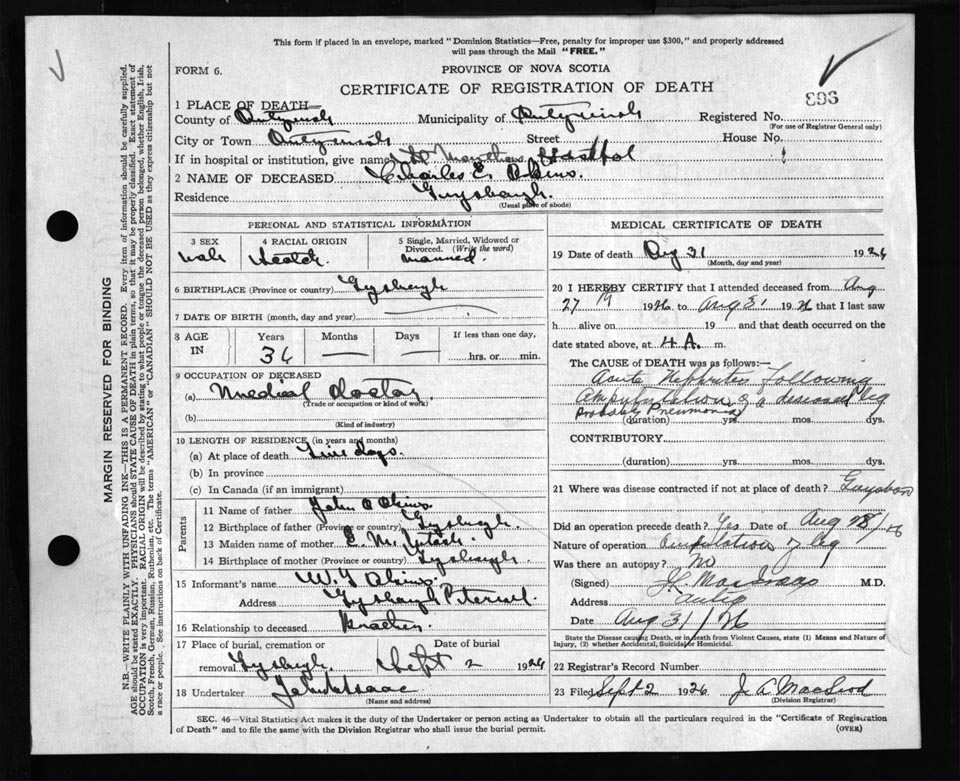 This form if placed in an envelope, marked "Dominion Statistics—Free, penalty for improper use $300," and properly addressed
will pass through the Mail "FREE."
FORM 6.
PROVINCE OF NOVA SCOTIA
CERTIFICATE OF REGISTRATION OF DEATH
1 PLACE OF DEATH—
County of Antigonish Municipality of Antigonish Registered No.
(For use of Registrar General only)
City or Town Antigonish Street House No.
If in hospital or institution, give name St Marthas Hospital
2 NAME OF DECEASED Charles E.
Residence Guysborough.
(Usual place of abode)
PERSONAL AND STATISTICAL INFORMATION
3 SEX 4 RACIAL ORIGIN 5 Single, Married, Widowed or
Divorced. (Write the word)
male married.
6 BIRTHPLACE (Province or country)
7 DATE OF BIRTH (month, day and year)
8 AGE IN Years Months Days If less than one day,
36 — — hrs. or min.
9 OCCUPATION OF DECEASED
(a) Medical doctor
(Trade or occupation or kind of work)
(b)
(Kind of industry)
10 LENGTH OF RESIDENCE (in years and months)
(a) At place of death days.
(b) In province
(c) In Canada (if an immigrant)
Parents
11 Name of father John
12 Birthplace of father (Province or country)
13 Maiden name of mother E.
14 Birthplace of mother (Province or country)
15 Informant's name
Address
16 Relationship to deceased Brother
17 Place of burial, cremation or Date of burial
removal Sept 2 1926
18 Undertaker
(Name and address)
MEDICAL CERTIFICATE OF DEATH
19 Date of death Aug 31 1926
(Month, day and year)
20 I HEREBY CERTIFY that I attended deceased from Aug
27 1926 to Aug 31 1926 that I last saw
h alive on 19 and that death occurred on the
date stated above, at 4 A. m.
The CAUSE OF DEATH was as follows:—
Acute Nephritis following
amputation of a diseased leg
Probably Pneumonia
(duration) yrs. mos. dys.
CONTRIBUTORY
(duration) yrs. mos. dys.
21 Where was disease contracted if not at place of death?
Did an operation precede death? Yes Date of Aug 28/26
Nature of operation amputation of leg
Was there an autopsy? No
(Signed) MacIsaac M.D.
Address Antig
Date Aug 31/26
State the Disease causing Death, or in death from Violent Causes, state (1) Means and Nature of
Injury, (2) whether Accidental, Suicidal or Homicidal.
22 Registrar's Record Number
23 Filed Sept 2 1926 J. A. MacLeod
(Division Registrar)
SEC. 46—Vital Statistics Act makes it the duty of the Undertaker or person acting as Undertaker to obtain all the particulars required in the "Certificate of Registration
of Death" and to file the same with the Division Registrar who shall issue the burial permit.
(OVER)
MARGIN RESERVED FOR BINDING
N.B.—WRITE PLAINLY WITH UNFADING INK—THIS IS A PERMANENT RECORD. Every item of information should be carefully supplied.
AGE should be stated EXACTLY. PHYSICIANS should STATE CAUSE OF DEATH in plain terms, so that it may be properly classified. Exact statement of
OCCUPATION is very important. RACIAL ORIGIN will be described by stating to what people or tongue the deceased person belonged, whether English, Irish,
Scotch, French, German, Russian, Ruthenian, etc. The terms "AMERICAN" or "CANADIAN" SHOULD NOT BE USED as they express citizenship but not
a race or people. See instructions on back of Certificate.